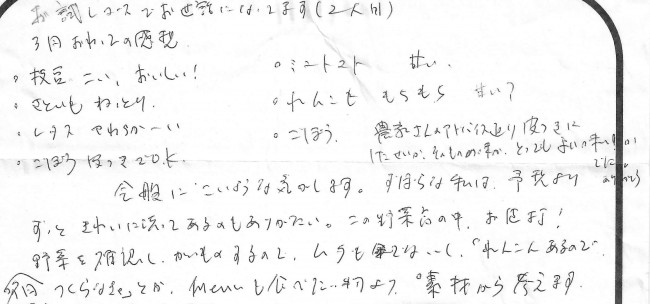 お試しコースでお世話になってます(2人用)
3回おわっての感想
・枝豆 こい、おいしい!
・ミニトマト 甘い。
・さといも ねっとり。
・れんこん もちもち 甘い?
・レタス やわらか〜い
・ごぼう。 農家さんのアドバイス通り皮つきに
したせいか、そのものの味か、とっても よい味
・ごぼう 皮つきでO.K.
全般に"こい"ような気がします。ずぼらな私は、予想より
ずっときれいに洗ってあるのもありがたい。この野菜の中、お値打!
野菜を確認し、かいものするので、ムラも でないし、"れんこんあるので
今日つくらなきゃ"とか、menuも食べたい物より"素材から考えます。